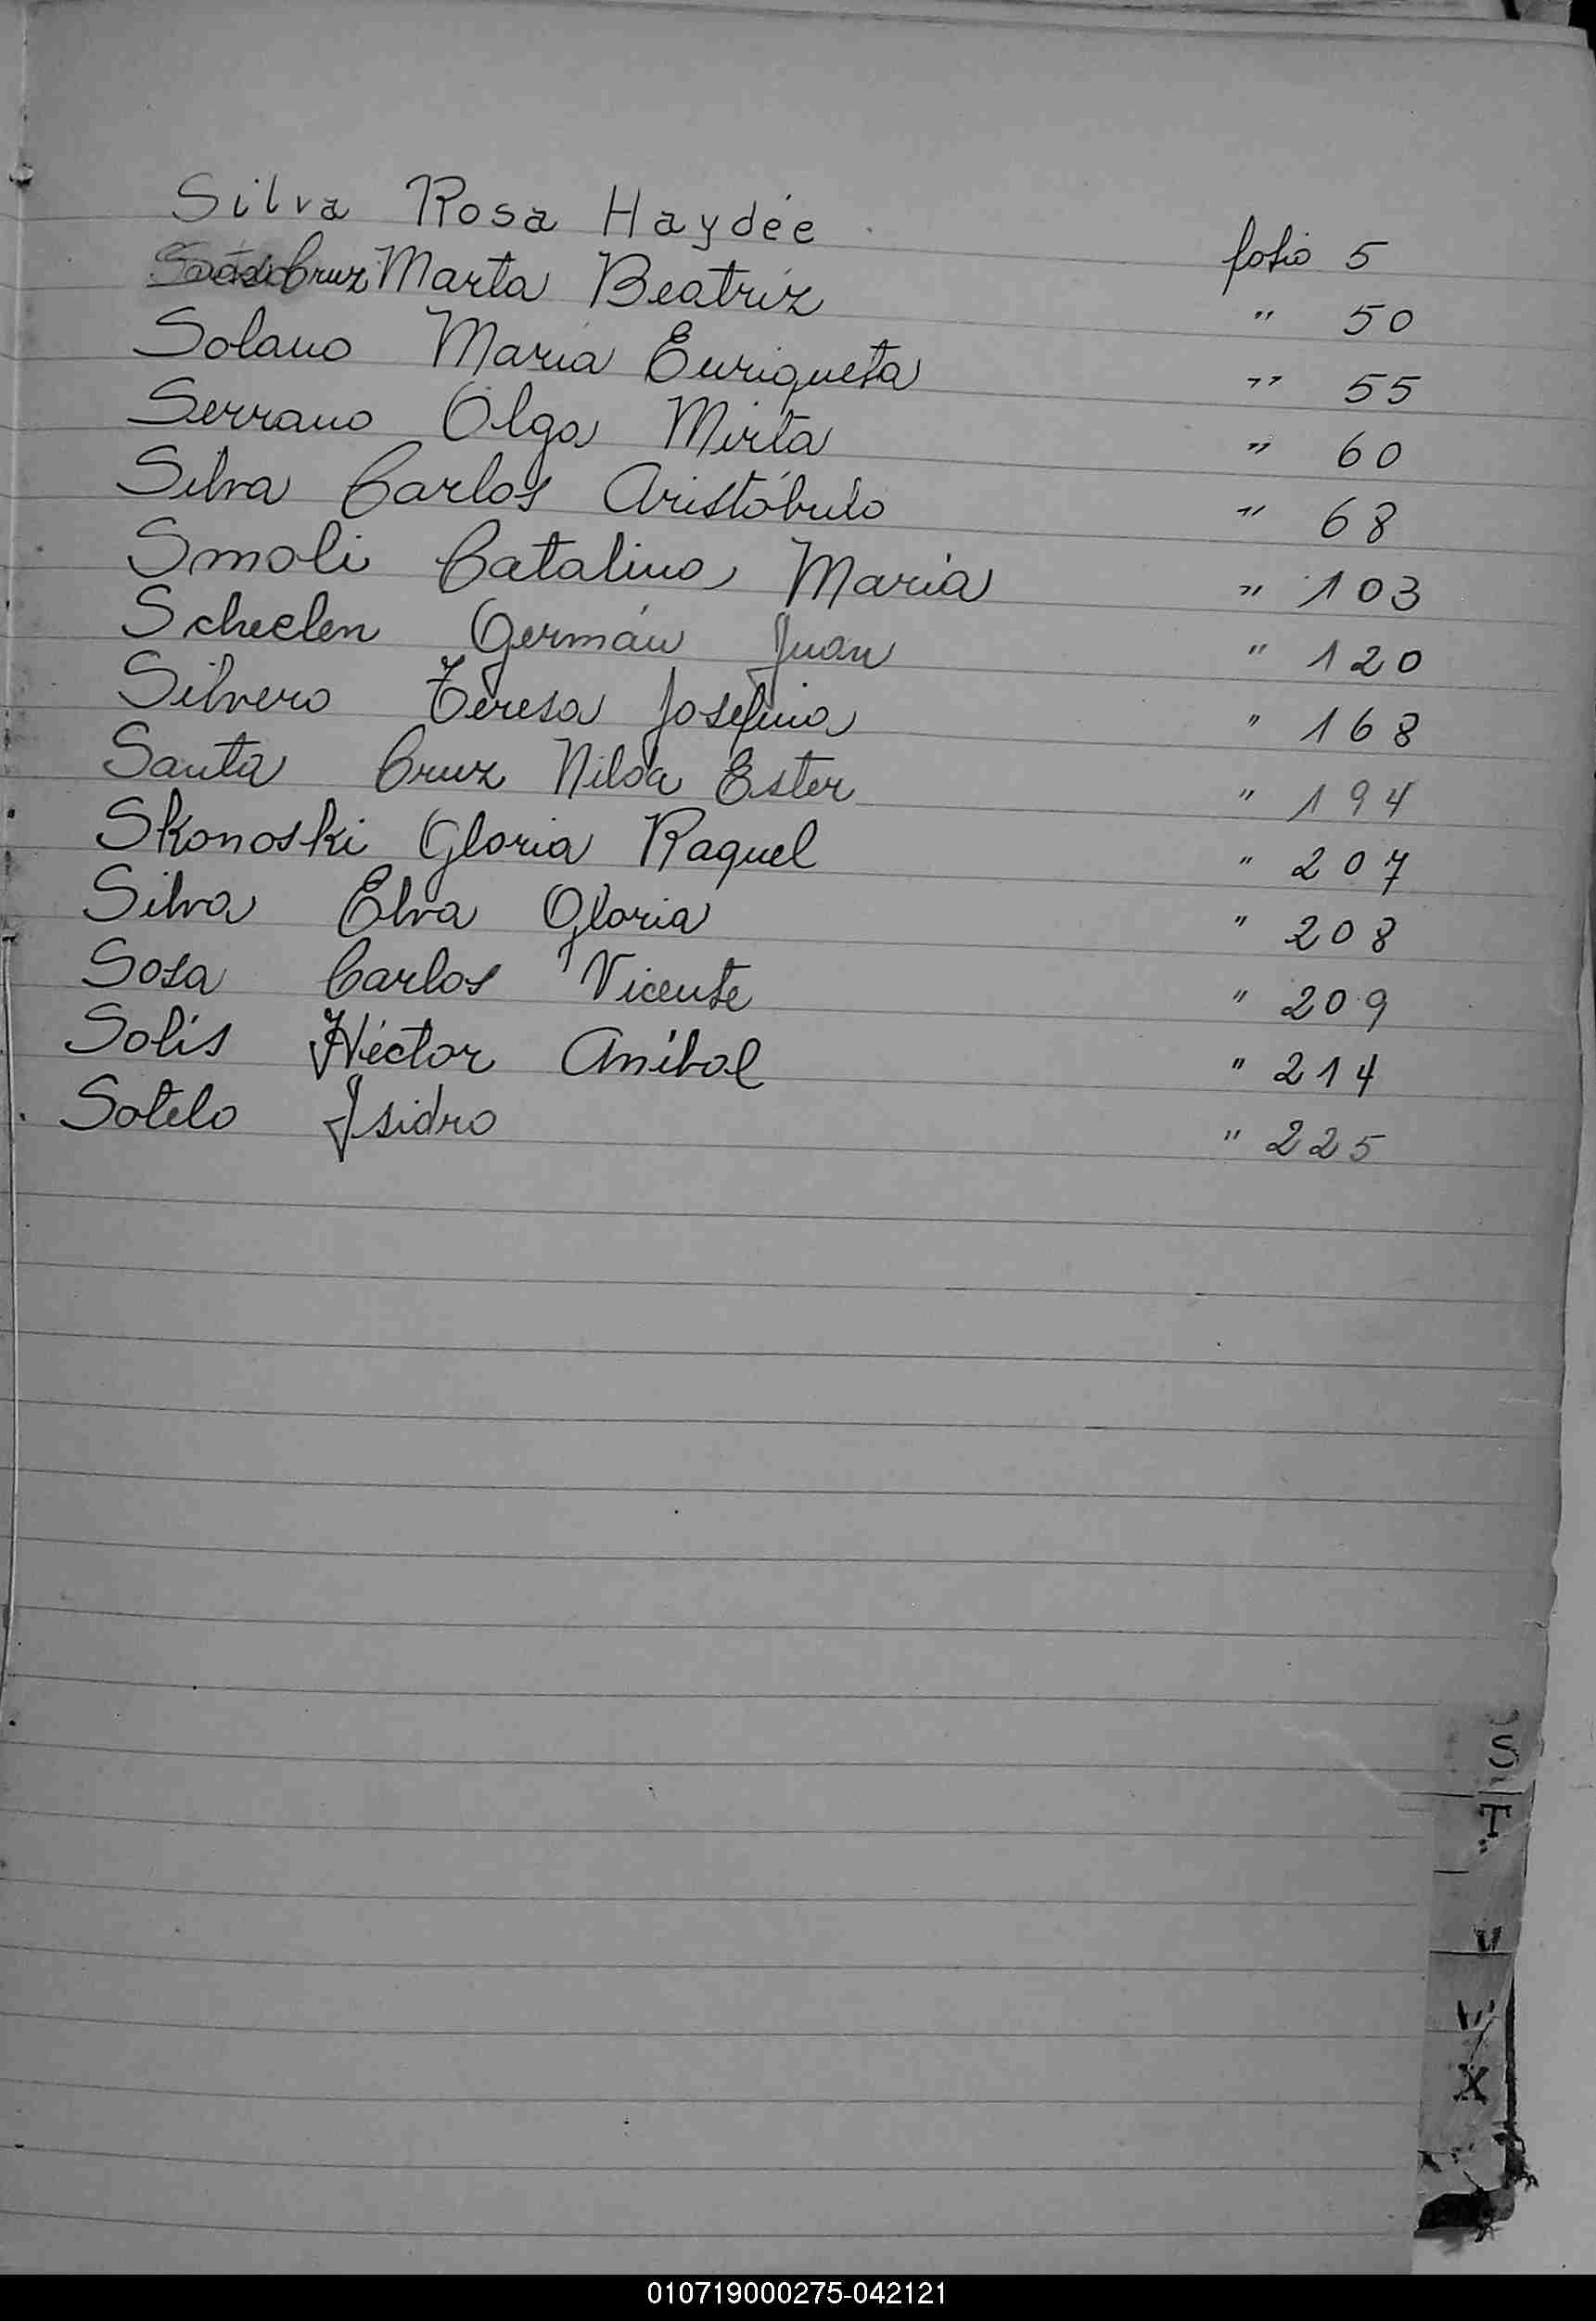 Silva Rosa Haydée folio 5
Cruz Marta Beatriz " 50
Solano María Enriqueta " 55
Serrano Olga Mirta " 60
Silva Carlos Aristóbulo " 68
Smoli Catalina María " 103
Scheclen Germán Juan " 120
Silvero Teresa Josefina " 168
Santa Cruz Nilda Ester " 194
Skonoski Gloria Raquel " 207
Silva Elva Gloria " 208
Sosa Carlos Vicente " 209
Solís Héctor Aníbal " 214
Sotelo Isidro " 225
S
T
V
W
X
010719000275-042121